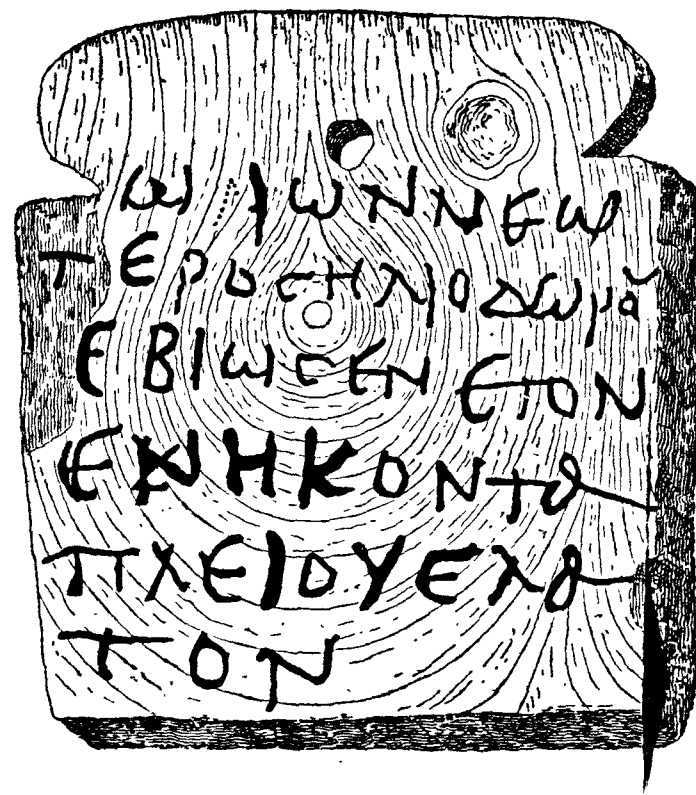 ΩΡΙΩΝ ΝΕΩ
ΤΕΡΟϹ ΗΛΙΟΔΩΡΟΥ
ΕΒΙΩϹΕΝ ΕΤΟΝ
ΕΝΗΚΟΝΤΑ
ΠΛΕΙΟΥ ΕΛΑ
ΤΟΝ